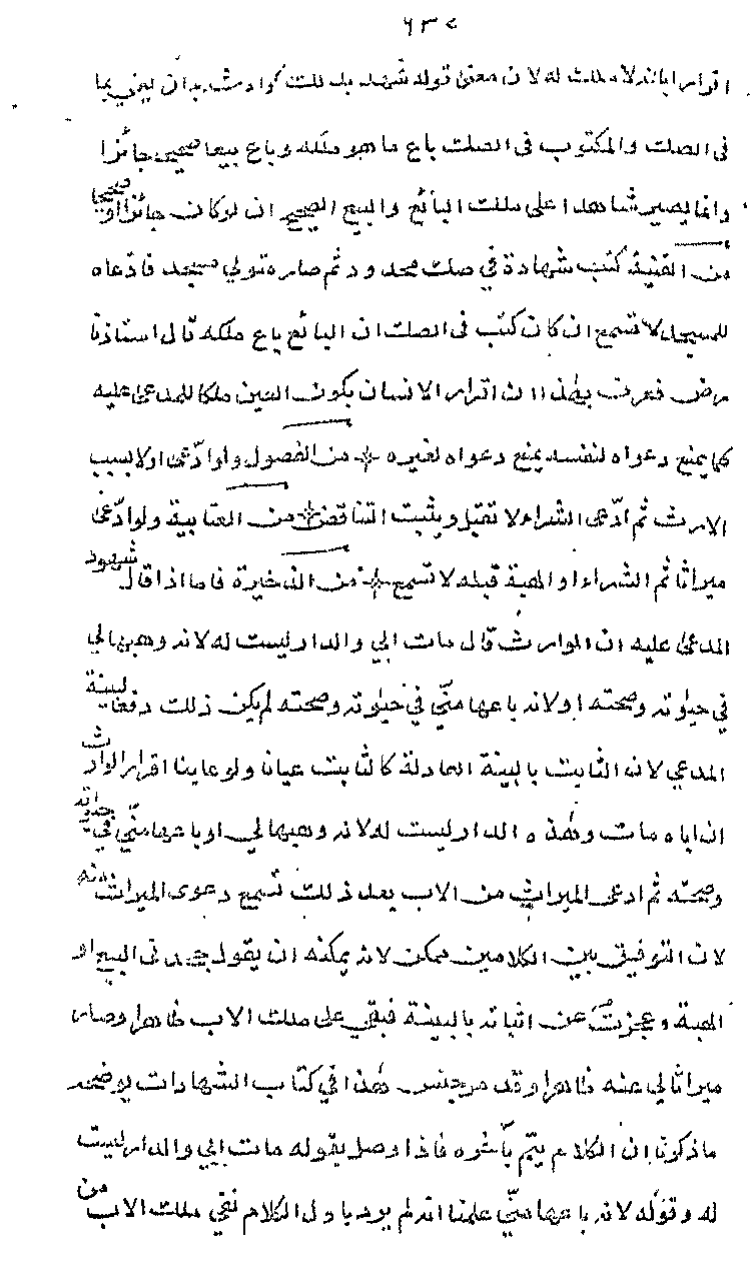 ٦٣٧
اقرارا بانه لا ملك له لان معنى قوله شهد بذلك كواد شهد بان يعني بما
في الصك والمكتوب في الصك باع ما هو ملكه وباع بيعا صحيحا جائزا
وانما يصير شاهدا على ملك البائع والبيع الصحيح ان لو كان جائزا او صحيحا
من القنية كتب شهادة في صك محدود ثم صار متولي مسجد فادعاه
للمسجد لا تسمع ان كان كتب في الصك ان البائع باع ملكه قال استاذنا
رض فعرف بهذا ان اقرار الانسان بكون العين ملكا للمدعى عليه
كما يمنع دعواه لنفسه يمنع دعواه لغيره من الفصول ولو ادّعى اولا بسبب
الارث ثم ادّعى الشراء لا تقبل ويثبت التناقض من العتابية ولو ادّعى
ميراثا ثم الشراء او الهبة قبله لا تسمع من الذخيرة فاما اذا قال شهود
المدعى عليه ان الوارث قال مات ابي والدار ليست له لانه وهبها لي
في حيٰوته وصحته او لانه باعها منّي في حيٰوته وصحته لم يكن ذلك دفعا لبينة
المدعي لان الثابت بالبينة العادلة كالثابت عيانا ولو عاينا اقرار الوارث
ان اباه مات وهٰذه الدار ليست له لانه وهبها لي او باعها منّي في حيوته
وصحته ثم ادعى الميراث من الاب بعد ذلك تسمع دعوى الميراث منه
لان التوفيق بين الكلامين ممكن لانه يمكنه ان يقول جحدني البيع او
الهبة وعجزتُ عن اثباته بالبينة فبقي على ملك الاب ظاهرا وصار
ميراثا لي عنه ظاهرا وقد مر جنس هٰذا في كتاب الشهادات يوضحه
ما ذكرنا ان الكلام يتم بآخره فاذا وصل بقوله مات ابي والدار ليست
له وقوله لانه باعها منّي علمنا انه لم يرد باول الكلام نفي ملك الاب من